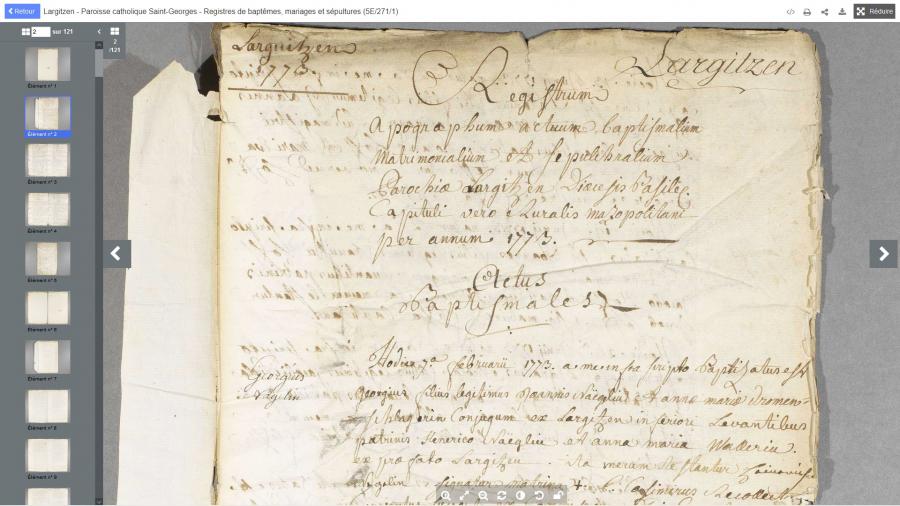 Retour
Largitzen - Paroisse catholique Saint-Georges - Registres de baptêmes, mariages et sépultures (5E/271/1)
Réduire
2 sur 121
2
/121
Élément n° 1
Élément n° 2
Élément n° 3
Élément n° 4
Élément n° 5
Élément n° 6
Élément n° 7
Élément n° 8
Élément n° 9
Larguitzen
1773
Largitzen
Registrum
apographum actuum baptismalium
Matrimonialium et sepulchralium
Parochiæ Largitzen Diœcesis Basileæ
Capituli vero Ruralis
per annum 1773.
Actus
Baptismales
Georgius
Nægelin
Hodie 7a februarii 1773. a me infra scripto baptisatus est
georgius filius legitimus Joannis Næglin et annæ mariæ
conjugum ex Largitzen inferiori Levantibus
patrinis Henerico Næglin et anna maria
ex præfato Largitzen
signatur matrina